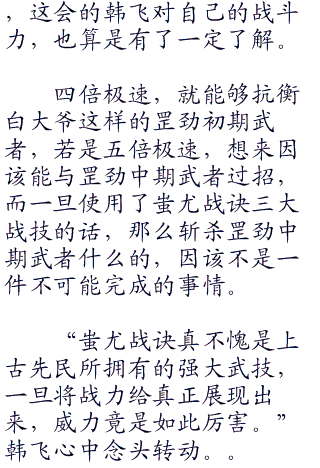 ，这会的韩飞对自己的战斗
力，也算是有了一定了解。
四倍极速，就能够抗衡
白大爷这样的罡劲初期武
者，若是五倍极速，想来因
该能与罡劲中期武者过招，
而一旦使用了蚩尤战诀三大
战技的话，那么斩杀罡劲中
期武者什么的，因该不是一
件不可能完成的事情。
“蚩尤战诀真不愧是上
古先民所拥有的强大武技，
一旦将战力给真正展现出
来，威力竟是如此厉害。”
韩飞心中念头转动。。